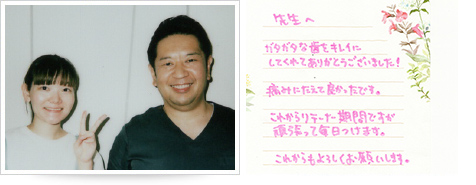 先生へ
ガタガタな歯をキレイに
してくれてありがとうございました！
痛みにたえて良かったです。
これからリテーナー期間ですが
頑張って毎日つけます。
これからもよろしくお願いします。